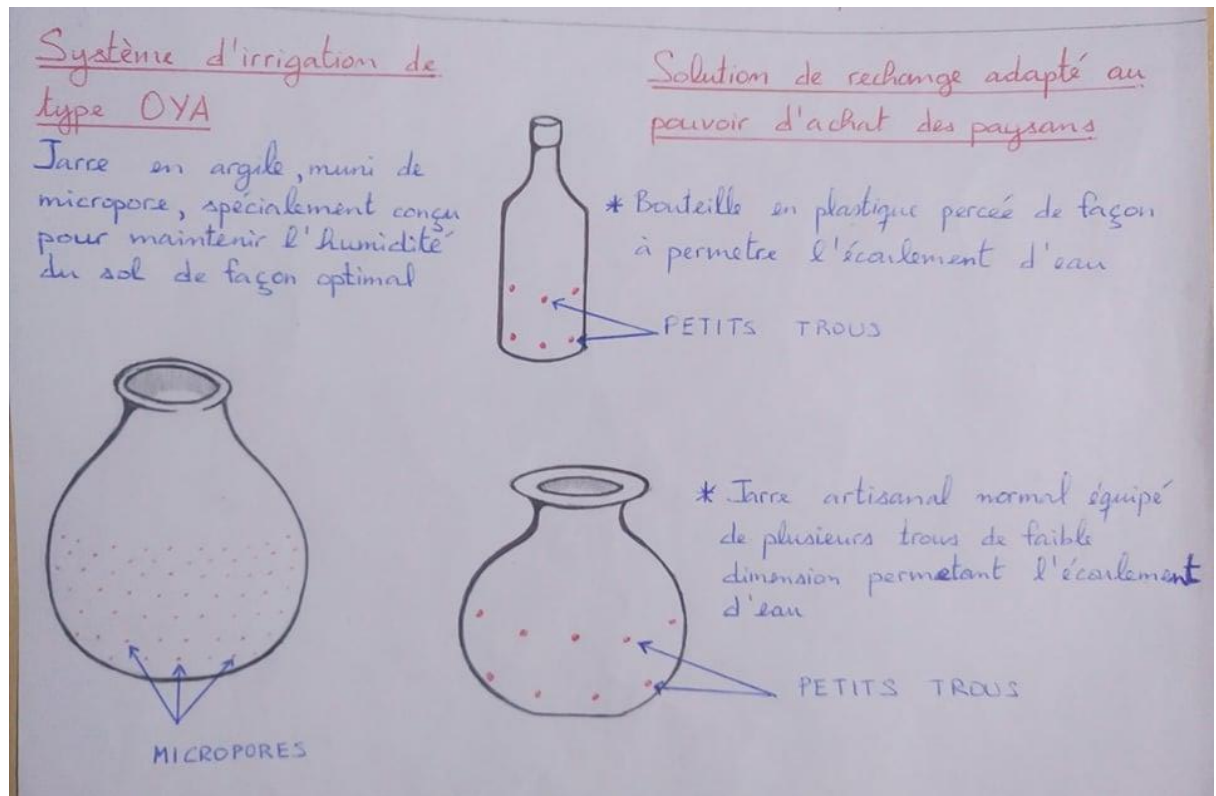 Système d'irrigation de
type OYA
Jarre en argile, muni de
micropore, spécialement conçu
pour maintenir l'humidité
du sol de façon optimal
MICROPORES
Solution de rechange adapté au
pouvoir d'achat des paysans
* Bouteille en plastique perceé de façon
à permetre l'écoulement d'eau
PETITS TROUS
* Jarre artisanal normal équipé
de plusieurs trous de faible
dimension permetant l'écoulement
d'eau
PETITS TROUS